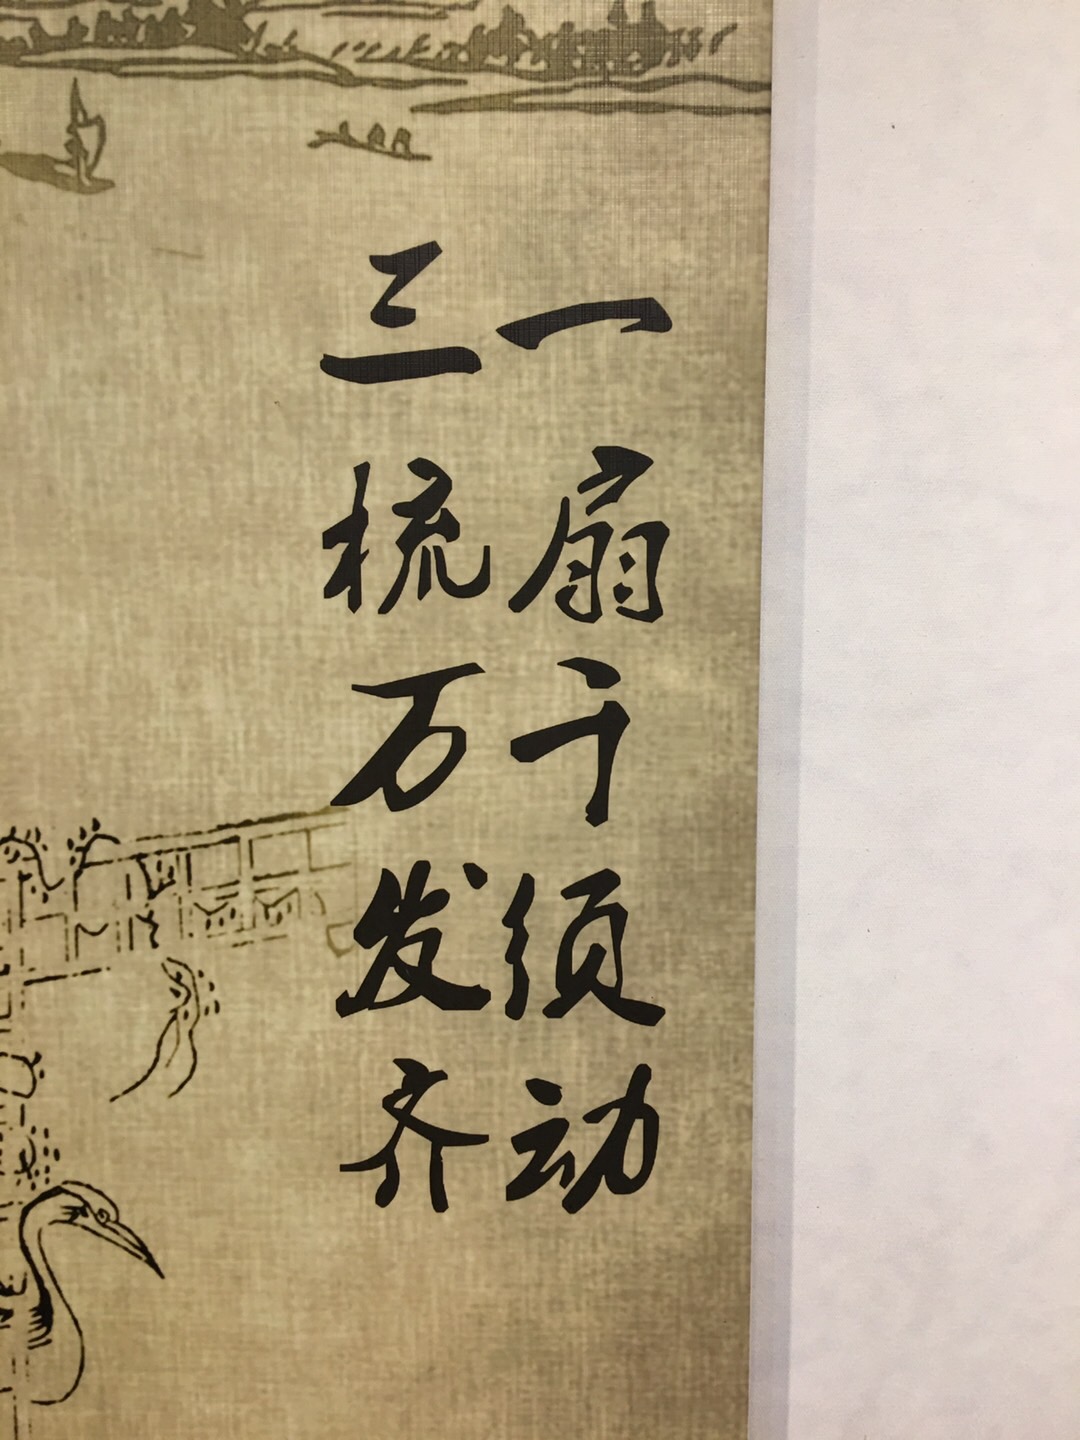 一扇千须动
三梳万发齐